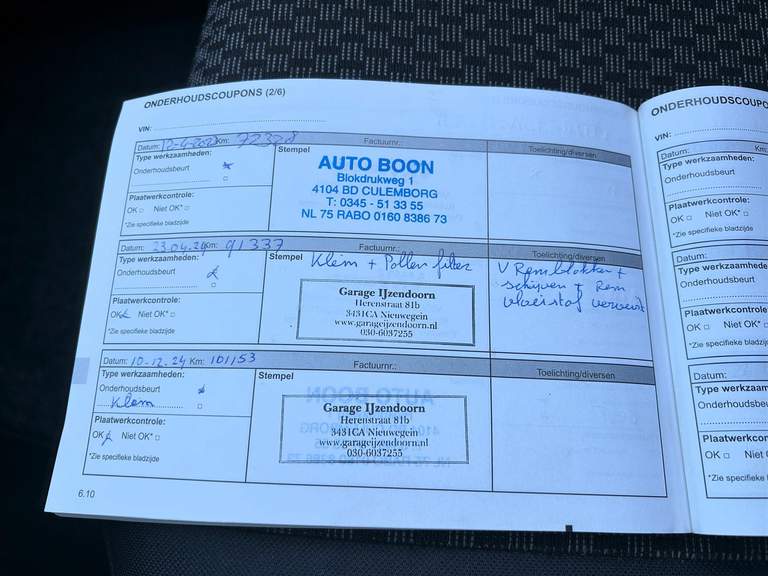 ONDERHOUDSCOUPONS (2/6)
VIN:
Datum: Km: 72328 Factuurnr.: Toelichting/diversen
Type werkzaamheden:
Onderhoudsbeurt
Plaatwerkcontrole:
OK Niet OK*
*Zie specifieke bladzijde
Stempel
AUTO BOON
Blokdrukweg 1
4104 BD CULEMBORG
T: 0345 - 51 33 55
NL 75 RABO 0160 8386 73
Datum: 23.04.24 Km: 91337 Factuurnr.: Toelichting/diversen
Type werkzaamheden:
Onderhoudsbeurt
Plaatwerkcontrole:
OK Niet OK*
*Zie specifieke bladzijde
Stempel Klein + Pollen filter
Garage IJzendoorn
Herenstraat 81b
3431CA Nieuwegein
www.garageijzendoorn.nl
030-6037255
V Remblokken +
schijven + Rem
vloeistof ververst
Datum: 10-12.24 Km: 101153 Factuurnr.: Toelichting/diversen
Type werkzaamheden:
Onderhoudsbeurt
Klein
Plaatwerkcontrole:
OK Niet OK*
*Zie specifieke bladzijde
Stempel
Garage IJzendoorn
Herenstraat 81b
3431CA Nieuwegein
www.garageijzendoorn.nl
030-6037255
6.10
ONDERHOUDSCOUPO
VIN:
Datum: Km:
Type werkzaamheden:
Onderhoudsbeurt
Plaatwerkcontrole:
OK Niet OK*
*Zie specifieke bladzijde
Datum:
Type werkzaamhede
Onderhoudsbeurt
Plaatwerkcontrole:
OK Niet OK*
*Zie specifieke bladzij
Datum:
Type werkzaam
Onderhoudsbeu
Plaatwerkcon
OK Niet O
*Zie specifieke